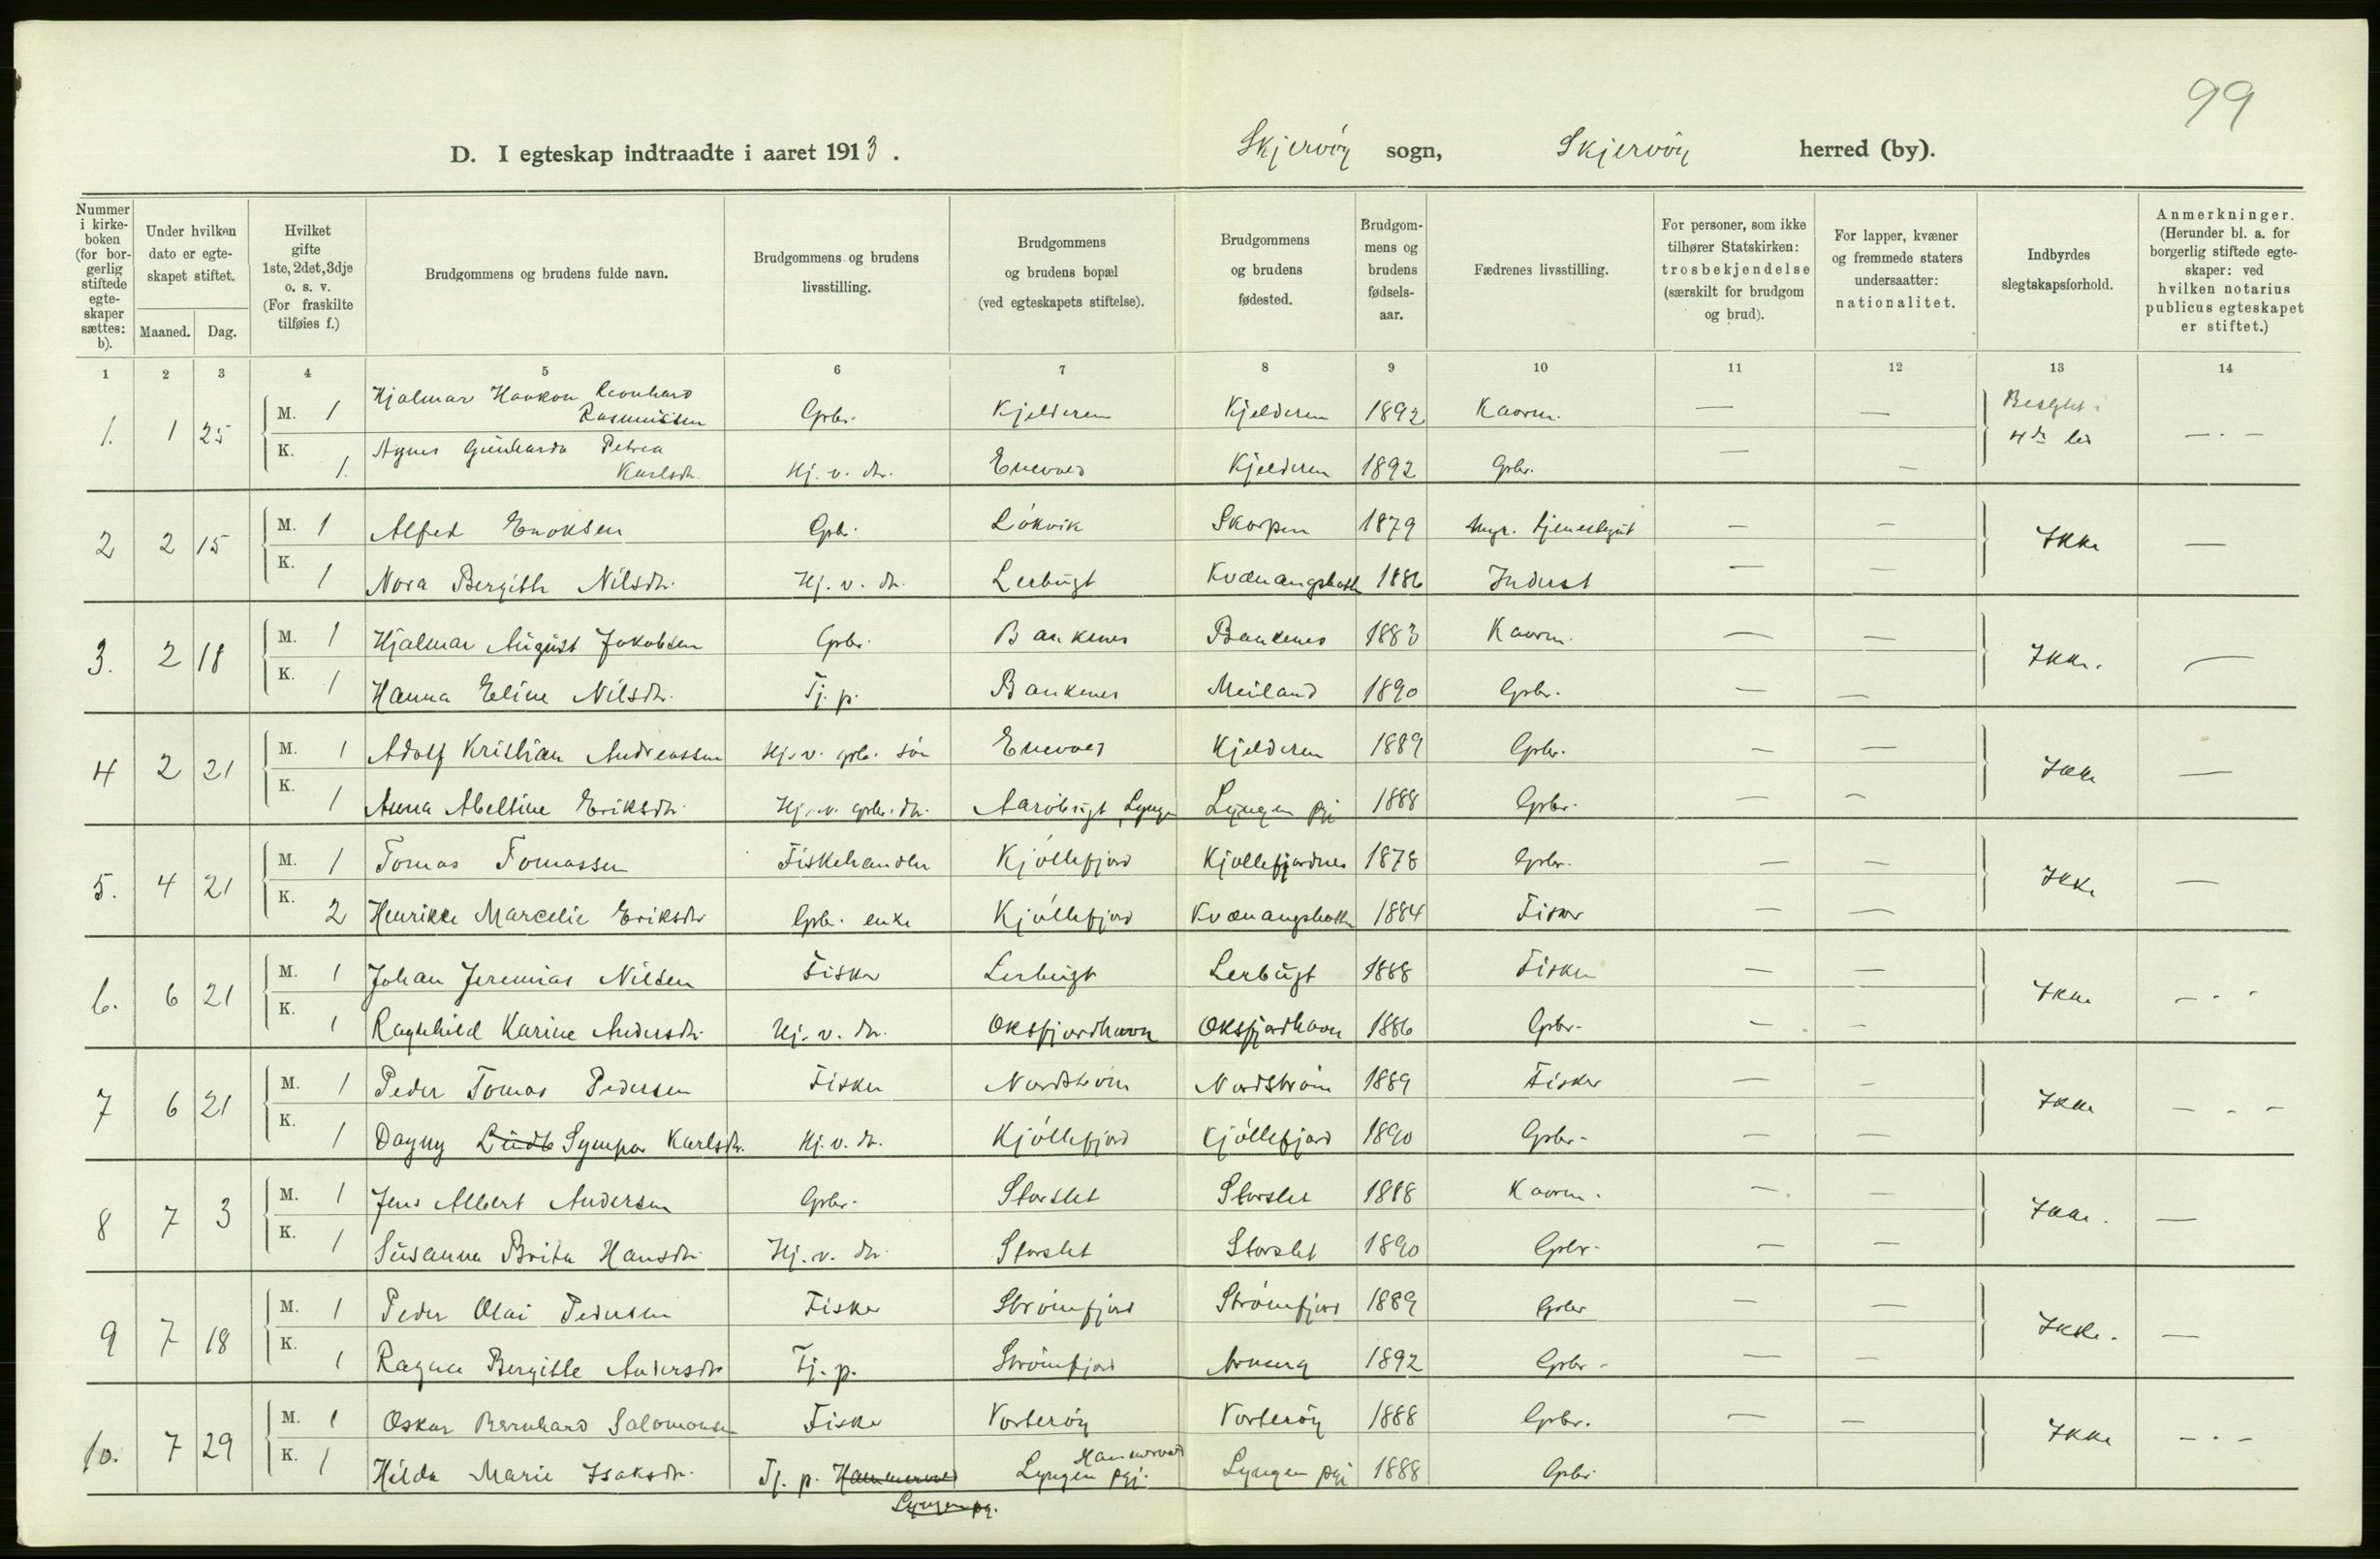 99
D. I egteskap indtraadte i aaret 1913. Skjervöy sogn, Skjervöy herred (by).
Nummer i kirke-boken (for bor-gerlig stiftede egte-skaper sættes: b).
Under hvilken dato er egte-skapet stiftet.
Maaned. Dag.
Hvilket gifte 1ste, 2det, 3dje o. s. v. (For fraskilte tilføies f.)
Brudgommens og brudens fulde navn.
Brudgommens og brudens livsstilling.
Brudgommens og brudens bopæl (ved egteskapets stiftelse).
Brudgommens og brudens fødested.
Brudgom-mens og brudens fødsels-aar.
Fædrenes livsstilling.
For personer, som ikke tilhører Statskirken: trosbekjendelse (særskilt for brudgom og brud).
For lapper, kvæner og fremmede staters undersaatter: nationalitet.
Indbyrdes slegtskapsforhold.
Anmerkninger. (Herunder bl. a. for borgerlig stiftede egte-skaper: ved hvilken notarius publicus egteskapet er stiftet.)
1 2 3 4 5 6 7 8 9 10 11 12 13 14
1. 1 25 M. 1 Hjalmar Haakon Leonhard Rasmussen Gbr. Kjelderen Kjelderen 1892 Kaarm. — — 4de led — . —
K. 1. Agnes Gunharda Petrea Karlsdtr. Hj. v. dtr. Enevold Kjelderen 1892 Gbr. — —
2 2 15 M. 1 Alfred Enoksen Gbr. Lökvik Skorpen 1879 — — Ikke —
K. 1 Nora Bergitte Nilsdtr. Hj. v. dtr. Lerbugt Kvænangsbotn 1886 Inderst — —
3. 2 18 M. 1 Hjalmar August Jakobsen Gbr. Bankenes Bankenes 1883 Kaarm. — — Ikke. —
K. 1 Hanna Eline Nilsdtr. Tj. p. Bankenes Meiland 1890 Gbr. — —
4 2 21 M. 1 Adolf Kristian Andreassen Hj. v. gbr. sön Enevold Kjelderen 1889 Gbr. — — Ikke —
K. 1 Anna Abeltine Eriksdtr. Hj. v. gbr. dtr. Aaröbugt, Lyngen Lyngen pgj 1888 Gbr. — —
5. 4 21 M. 1 Tomas Tomassen Fiskehandler Kjöllefjord Kjöllefjordnes 1878 Gbr. — — Ikke —
K. 2 Henrikke Marcelie Eriksdtr Gbr. enke Kjöllefjord Kvænangsbotn 1884 Fisker — —
6. 6 21 M. 1 Johan Jeremias Nilsen Fisker Lerbugt Lerbugt 1888 Fisker — — Ikke — . -
K. 1 Ragnhild Karine Andersdtr. Hj. v. dtr. Oksfjordhavn Oksfjordhavn 1886 Gbr. — —
7 6 21 M. 1 Peder Tomas Pedersen Fisker Nordström Nordström 1889 Fisker — — Ikke — - -
K. 1 Dagny Sympa Karlsdtr. Hj. v. dtr. Kjöllefjord Kjöllefjord 1890 Gbr. — —
8 7 3 M. 1 Jens Albert Andersen Gbr. Storslet Storslet 1888 Kaarm. — — Ikke. —
K. 1 Susanna Brita Hansdtr. Hj. v. dtr. Storslet Storslet 1890 Gbr. — —
9 7 18 M. 1 Peder Olai Pedersen Fisker Strömfjord Strömfjord 1889 Gbr — — Ikke. —
K. 1 Ragna Bergitte Andersdtr Tj. p. Strömfjord 1892 Gbr. — —
10. 7 29 M. 1 Oskar Bernhard Salomonsen Fisker Vorteröy Vorteröy 1888 Gbr. — — Ikke — . —
K. 1 Hilda Marie Isaksdtr. Tj. p. Hammervold Lyngen pgj. Hammervold Lyngen pgj 1888 Gbr.
Lyngen pgj.